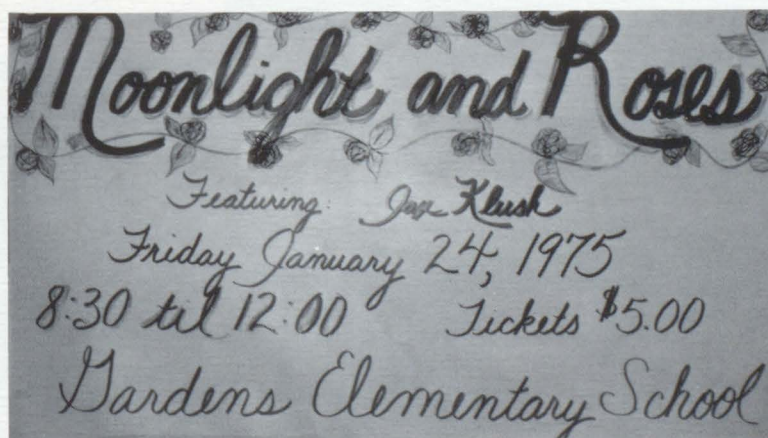 Moonlight and Roses
Featuring: Klush
Friday January 24, 1975
8:30 til 12:00 Tickets $5.00
Gardens Elementary School